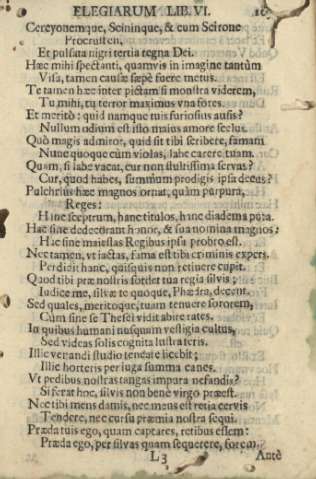 ELEGIARUM LIB. VI.
Cercyonemque, Scininque, & cum Scirone
Procrusten,
Et pulsata nigri tertia regna Dei.
Hæc mihi spectanti, quamvis in imagine tantùm
Visa, tamen causæ sæpè fuere metus.
Te tamen hæc inter pictam si monstra viderem,
Tu mihi, tu terror maximus una fores.
Et meritò: quid namque tuis furiosius ausis?
Nullum odium est isto maius amore scelus.
Quò magis admiror, quid sit tibi scribere, famam
Nunc quoque cùm violas, labe carere tuam.
Quam, si labe vacat, cur non stultissima servas?
Cur, quod habes, summum prodigis ipsa decus?
Pulchrius hæc magnos ornat, quàm purpura,
Reges:
Hinc sceptrum, hanc titulos, hanc diadema puta.
Hac sine dedecorant honor, & sua nomina magnos:
Hac sine maiestas Regibus ipsa probro est.
Nec tamen, vt iactas, fama est tibi criminis expers.
Perdidit hanc, quisquis non retinere cupit.
Quod tibi præ nostris sordet tua regia silvis;
Iudice me, silvæ te quoque, Phædra, decent.
Sed quales, meritoque, tuam tenuere sororem,
Cùm sine se Thesei vidit abire rates.
In quibus humani nusquam vestigia cultus,
Sed videas solis cognita lustra feris.
Illic venandi studio tendare licebit;
Illic horteris per iuga summa canes.
Vt pedibus nostras tangas impura nefandis?
Si ferat hoc, silvis non benè virgo præest.
Nec tibi mens damis, nec mens est retia cervis
Tendere, nec cursu præmia nostra sequi.
Præda tuis ego, quam captares, retibus essem:
Præda ego, per silvas quam sequerere, forem.
L3 Antè